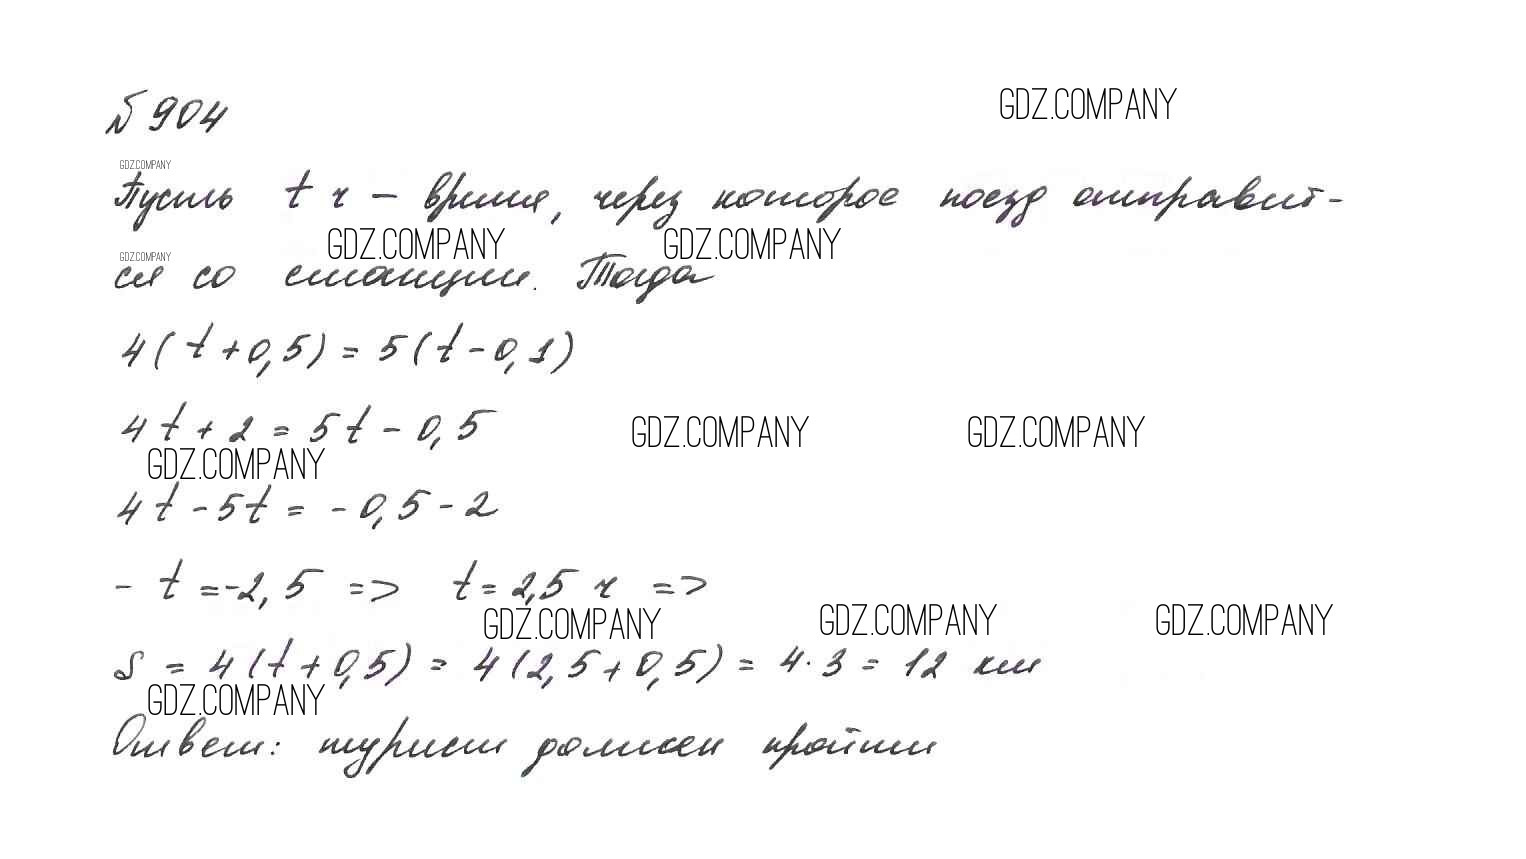 № 904
GDZ.COMPANY
GDZ.COMPANY
Пусть t ч – время, через которое поезд отправит-
GDZ.COMPANY GDZ.COMPANY
GDZ.COMPANY
ся со станции. Тогда
4(t+0,5) = 5(t-0,1)
4t+2 = 5t-0,5
GDZ.COMPANY GDZ.COMPANY
GDZ.COMPANY
4t-5t = -0,5-2
-t=-2,5 => t=2,5 ч =>
GDZ.COMPANY GDZ.COMPANY GDZ.COMPANY
S = 4(t+0,5) = 4(2,5+0,5) = 4·3 = 12 км
GDZ.COMPANY
Ответ: турист должен пройти